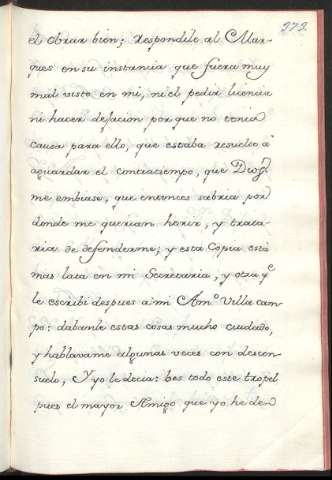 373.
el obrar bien; Respondile al Mar-
ques en su instancia que fuera muy
mal visto en mi, ni el pedir licencia
ni hacer dejacion por que no tenia
causa para ello, que estaba resuelto a
aguardar el contratiempo, que Dios
me embiase, que entonces sabria por
donde me querian herir, y trata-
ria de defenderme; y esta Copia está
mas lata en mi Secretaria, y otra qᵉ
le escribi despues a mi Amº Villa cam-
po: dabanle estas cosas mucho cuidado,
y hablavame algunas veces con descon-
suelo, Y yo le decia: bes todo este tropel
pues el mayor Amigo que yo he de